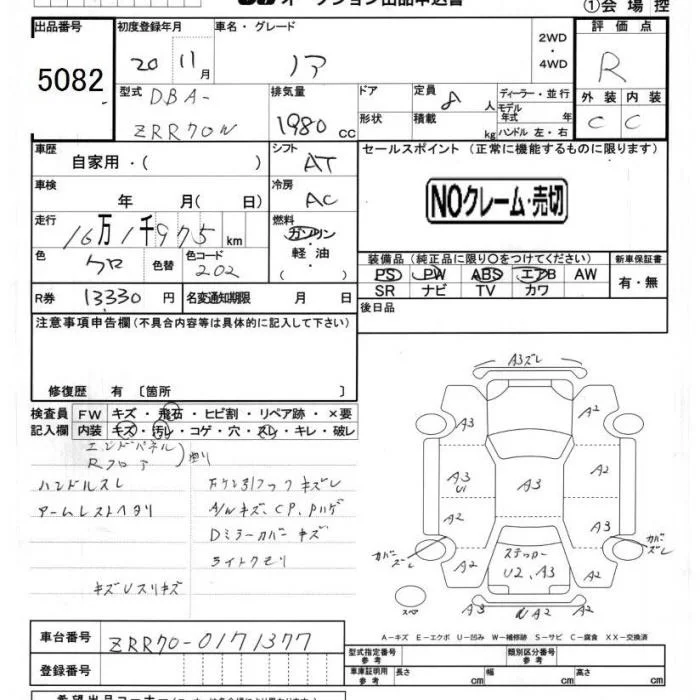 オークション出品申込書
①会場控
出品番号 初度登録年月 車名・グレード 評価点
5082 20 11月 ノア 2WD・4WD R
型式 DBA-ZRR70W 排気量 1980cc ドア 形状 定員 8人 積載 kg ディーラー・並行 モデル年式 年 ハンドル 左・右 外装 内装
C C
車歴 自家用・( ) シフト AT セールスポイント (正常に機能するものに限ります)
車検 年 月( 日) 冷房 AC NOクレーム・売切
走行 16万1千975km 燃料 ガソリン・軽油・( )
色 クロ 色替 色コード 202 装備品 (純正品に限り○をつけてください) 新車保証書
PS PW ABS エアB AW 有・無
SR ナビ TV カワ
R券 13330円 名変通知期限 月 日 後日品
注意事項申告欄 (不具合内容等は具体的に記入して下さい)
修復歴 有 [箇所 ]
検査員記入欄 FW キズ・飛石・ヒビ割・リペア跡・×要
内装 キズ・汚レ・コゲ・穴・スレ・キレ・破レ
エンドパネル
Rフロア
ハンドルスレ
アームレストヘタリ
A/Wキズ、C P、Pハゲ
Dミラーカバーキズ
ライトクモリ
キズUスリキズ
A3ズレ
A3 A2
A3 U1 A3 A2
A2 A3
カバーズレ カバーズレ
A2 ステッカー U2、A3 A2
スペア A3 A2
A-キズ E-エクボ U-凹み W-補修跡 S-サビ C-腐食 XX-交換済
車台番号 ZRR70-0171377
型式指定番号 参考 類別区分番号 参考
登録番号 車庫証明用 参考 長さ cm 幅 cm 高さ cm